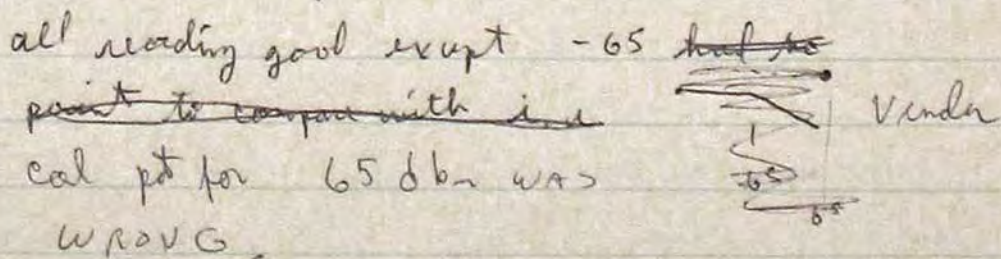 all reading good except -65 had no
point to compare with in
Vendor
cal pt for 65 dbm WAS
-65
65
WRONG.